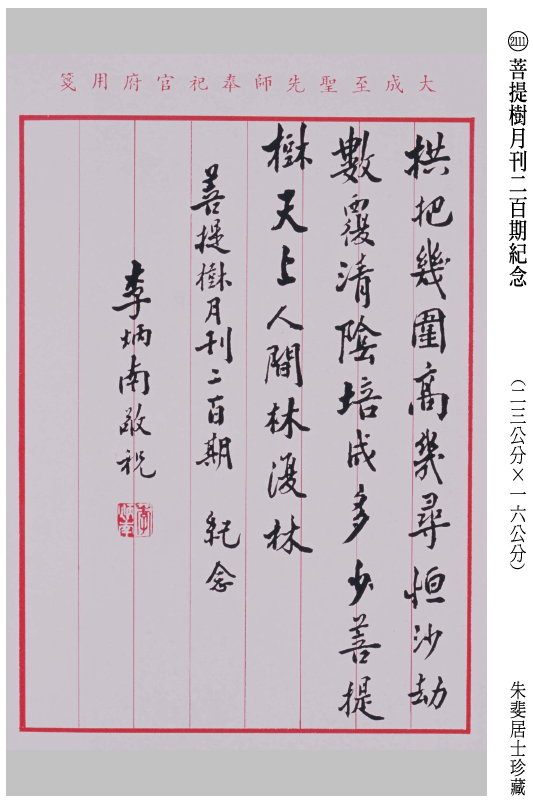 2111 菩提樹月刊二百期紀念 (二三公分×一六公分) 朱斐居士珍藏
大成至聖先師奉祀官府用箋
拱把幾圍高幾尋恒沙劫
數覆清陰培成多少菩提
樹天上人間林復林
菩提樹月刊二百期 紀念
李炳南敬祝
李炳南